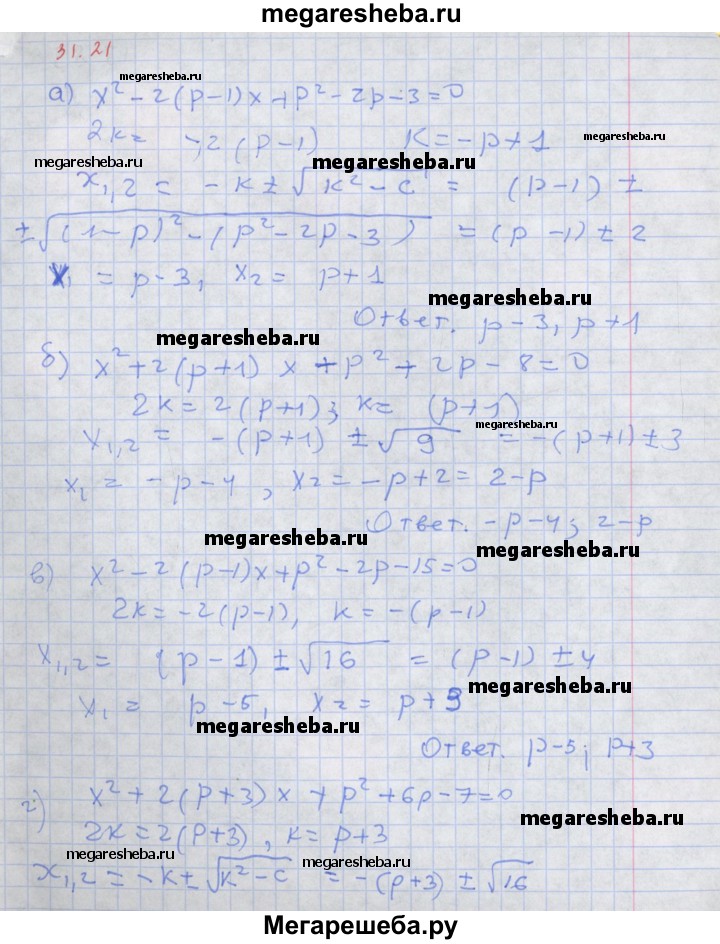 megaresheba.ru
31.21
megaresheba.ru
а) x² - 2(p-1)x + p² - 2p - 3 = 0
2k = -2(p-1)  k = -p+1
megaresheba.ru
megaresheba.ru
megaresheba.ru
x₁,₂ = -k ± √(k² - c) = (p-1) ±
± √((1-p)² - (p² - 2p - 3)) = (p-1) ± 2
x₁ = p-3, x₂ = p+1
megaresheba.ru
Ответ. p-3, p+1
megaresheba.ru
б) x² + 2(p+1)x + p² + 2p - 8 = 0
2k = 2(p+1); k = (p+1)
megaresheba.ru
x₁,₂ = -(p+1) ± √9 = -(p+1) ± 3
x₁ = -p-4, x₂ = -p+2 = 2-p
Ответ. -p-4; 2-p
megaresheba.ru
megaresheba.ru
в) x² - 2(p-1)x + p² - 2p - 15 = 0
2k = -2(p-1), k = -(p-1)
x₁,₂ = (p-1) ± √16 = (p-1) ± 4
megaresheba.ru
x₁ = p-5, x₂ = p+3
megaresheba.ru
Ответ. p-5; p+3
г) x² + 2(p+3)x + p² + 6p - 7 = 0
megaresheba.ru
2k = 2(p+3), k = p+3
megaresheba.ru
megaresheba.ru
x₁,₂ = -k ± √(k² - c) = -(p+3) ± √16
Мегарешеба.ру